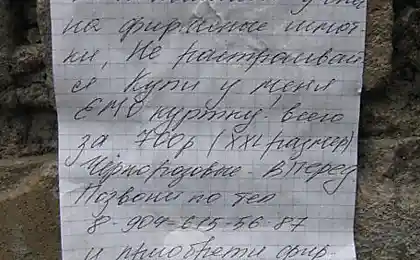 на фирменные шмот
ки, не расстраивай
ся Купи у меня
ЕМО куртку всего
за 700р (XXL размер)
Чёрнорозовые. Вперед
Позвони по тел
8-904-615-56-87
и приобрети фир-